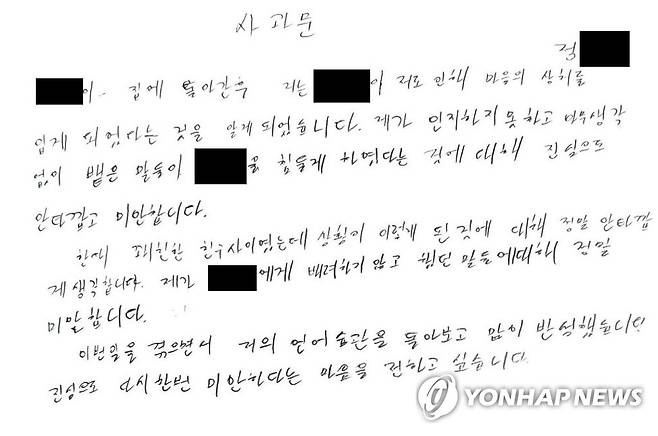 사과문
정
이.. 집에 돌아간후 저는 이 저로 인해 마음의 상처를
입게 되었다는 것을 알게되었습니다. 제가 인지하지 못하고 아무생각
없이 뱉은 말들이 을 힘들게 하였다는 것에 대해 진심으로
안타깝고 미안합니다.
한때 꽤친한 친구사이였는데 상황이 이렇게 된것에 대해 정말 안타깝
게 생각합니다. 제가 에게 배려하지 않고 했던 말들에대해 정말
미안합니다.
이번일을 겪으면서 저의 언어습관을 돌아보고 많이 반성했습니다
진심으로 다시한번 미안하다는 마음을 전하고 싶습니다
YONHAP NEWS